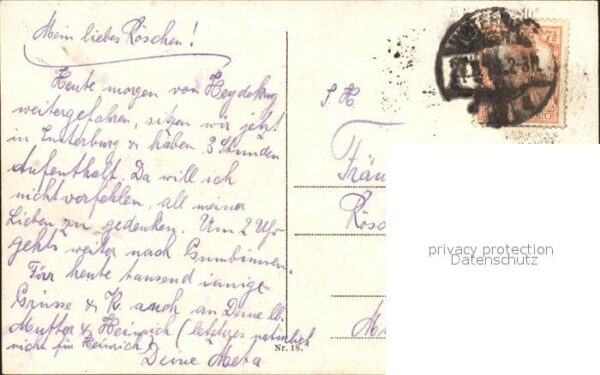 Mein liebes Röschen!
Heute morgen von Heydekrug
weitergefahren, sitzen wir jetzt
in Insterburg & haben 3 Stunden
Aufenthalt. Da will ich
nicht verfehlen, all meiner
Lieben zu gedenken. Um 2 Uhr
gehts weiter nach Gumbinnen.
Für heute tausend innige
Grüsse & K. auch an Deine ll.
Mutter & Heinrich (letzteres natürlich
nicht für Heinrich)
Deine Meta
Nr. 18.
7½
S. H
Fräu
Rösc
privacy protection
Datenschutz